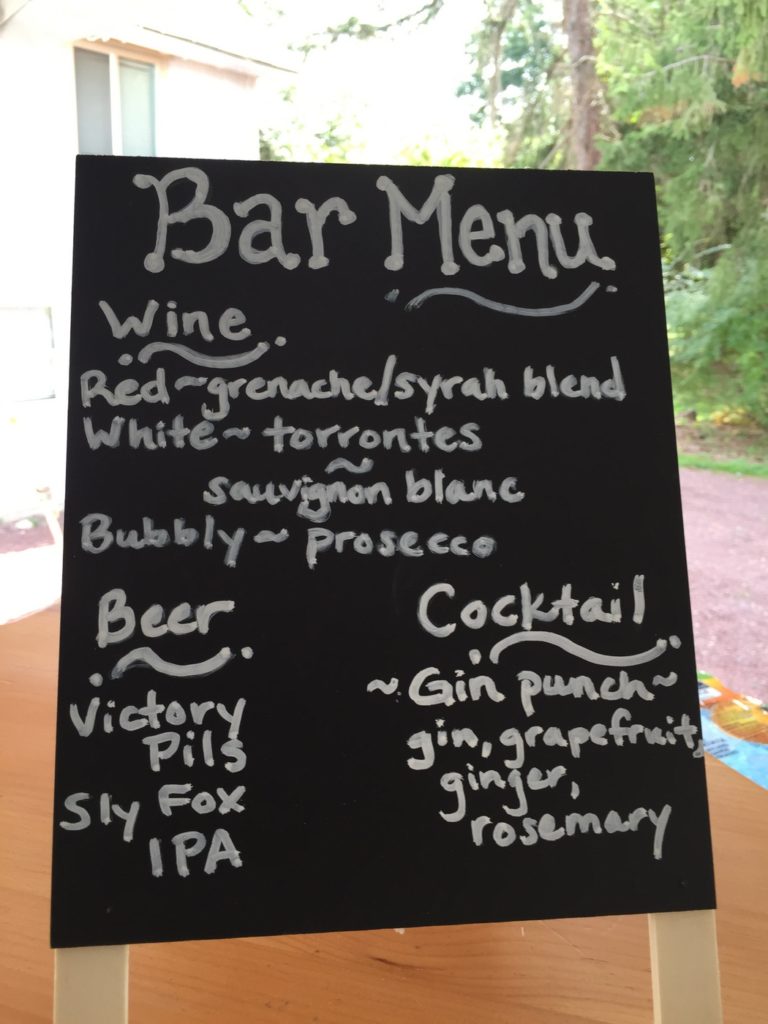 Bar Menu
Wine
Red~grenache/syrah blend
White~ torrontes
~
sauvignon blanc
Bubbly~ prosecco
Beer
Victory
Pils
Sly Fox
IPA
Cocktail
~Gin punch~
gin, grapefruit,
ginger,
rosemary